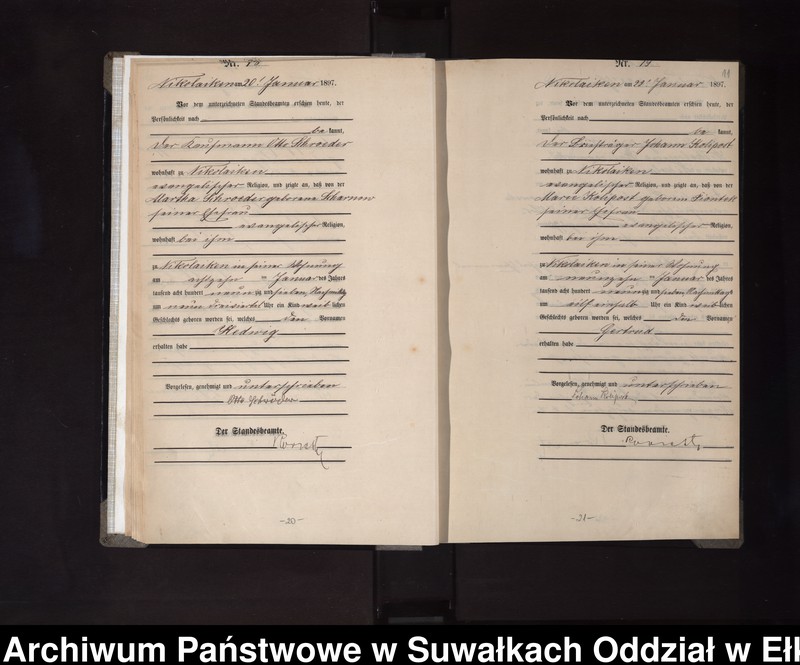 Nr. 18
Nikolaiken am 20t. Januar 1897.
Vor dem unterzeichneten Standesbeamten erschien heute, der
Persönlichkeit nach
be kannt,
der Kaufmann Otto Schroeder
wohnhaft zu Nikolaiken
evangelischer Religion, und zeigte an, daß von der
Martha Schroeder geborene
seiner Ehefrau
evangelischer Religion,
wohnhaft bei ihm
zu Nikolaiken in seiner Wohnung
am achtzehn ten Januar des Jahres
tausend acht hundert neunzig und sieben, Nachmittag
um neun dreiviertel Uhr ein Kind weiblichen
Geschlechts geboren worden sei, welches den Vornamen
Hedwig
erhalten habe
Vorgelesen, genehmigt und unterschrieben
Otto Schroeder
Der Standesbeamte.
-20-
Nr. 19
11
Nikolaiken am 20t. Januar 1897.
Vor dem unterzeichneten Standesbeamten erschien heute, der
Persönlichkeit nach
be kannt,
der Briefträger Johann Kolipost
wohnhaft zu Nikolaiken
evangelischer Religion, und zeigte an, daß von der
Marie Kolipost geborenen Piontek
seiner Ehefrau
evangelischer Religion,
wohnhaft bei ihm
zu Nikolaiken in seiner Wohnung
am neunzehn ten Januar des Jahres
tausend acht hundert neunzig und sieben, Nachmittags
um elf einhalb Uhr ein Kind weiblichen
Geschlechts geboren worden sei, welches den Vornamen
Gertrud
erhalten habe
Vorgelesen, genehmigt und unterschrieben
Johann Kolipost
Der Standesbeamte.
-21-
Archiwum Państwowe w Suwałkach Oddział w Ełk